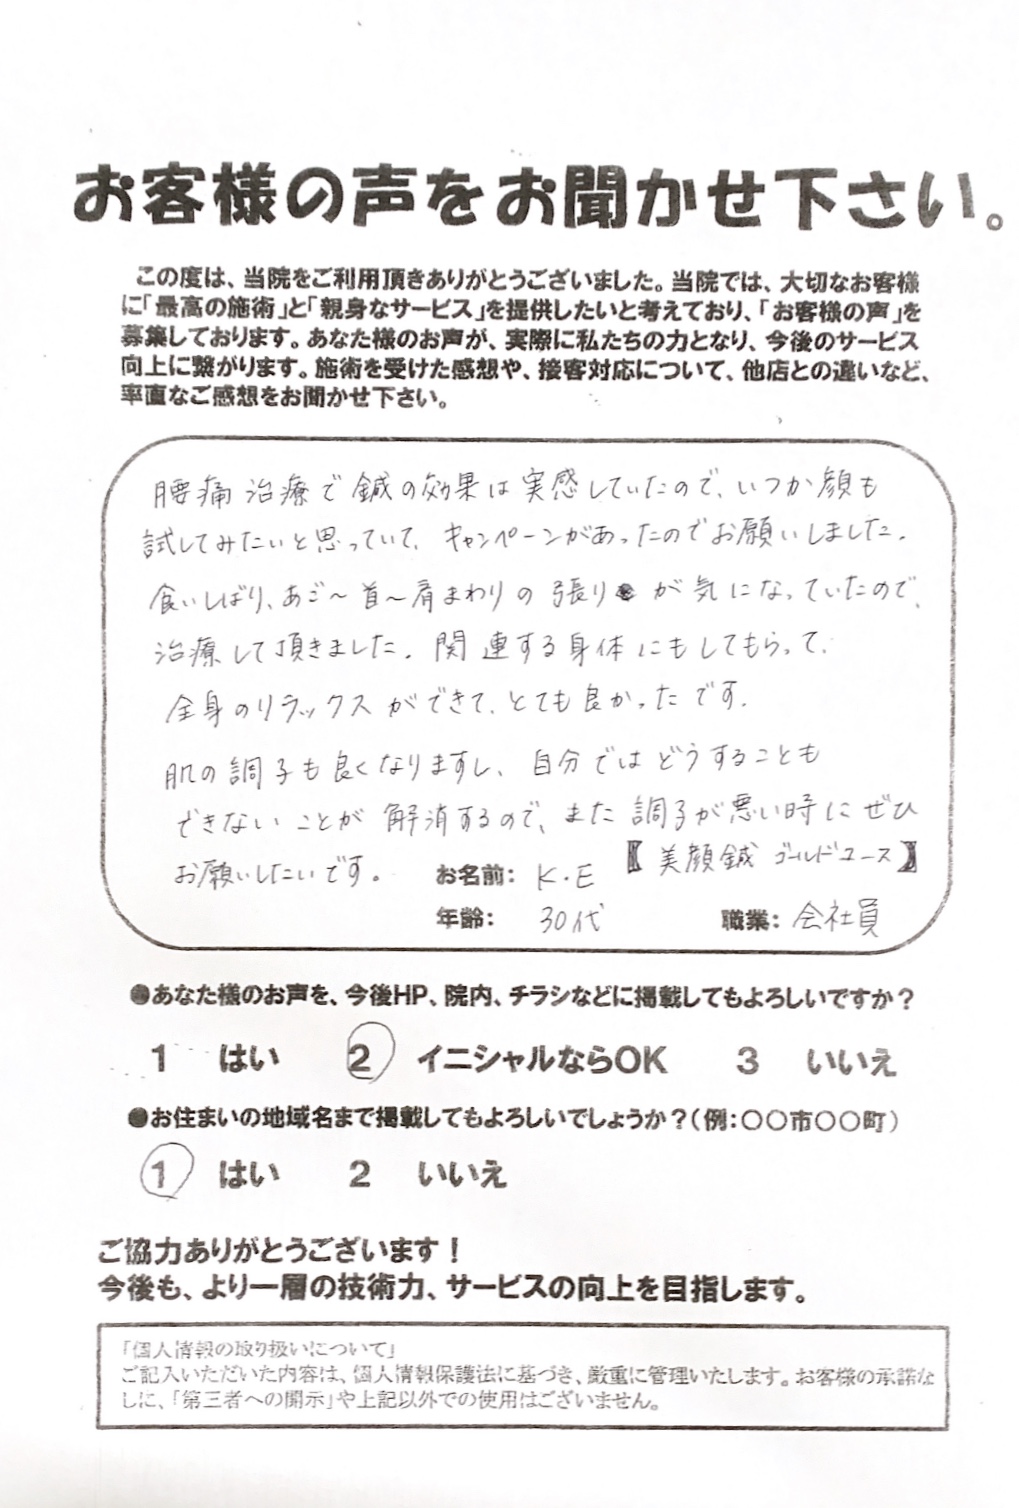 お客様の声をお聞かせ下さい。
この度は、当院をご利用頂きありがとうございました。当院では、大切なお客様
に「最高の施術」と「親身なサービス」を提供したいと考えており、「お客様の声」を
募集しております。あなた様のお声が、実際に私たちの力となり、今後のサービス
向上に繋がります。施術を受けた感想や、接客対応について、他店との違いなど、
率直なご感想をお聞かせ下さい。
腰痛治療で鍼の効果は実感していたので、いつか顔も
試してみたいと思っていて、キャンペーンがあったのでお願いしました。
食いしばり、あご〜首〜肩まわりの張りが気になっていたので、
治療して頂きました。関連する身体にもしてもらって、
全身のリラックスができて、とても良かったです。
肌の調子も良くなりますし、自分ではどうすることも
できないことが解消するので、また調子が悪い時にぜひ
お願いしたいです。
【美顔鍼 ゴールドコース】
お名前: K・E
年齢: 30代 職業: 会社員
●あなた様のお声を、今後HP、院内、チラシなどに掲載してもよろしいですか？
1 はい 2 イニシャルならOK 3 いいえ
●お住まいの地域名まで掲載してもよろしいでしょうか？(例：〇〇市〇〇町)
1 はい 2 いいえ
ご協力ありがとうございます！
今後も、より一層の技術力、サービスの向上を目指します。
「個人情報の取り扱いについて」
ご記入いただいた内容は、個人情報保護法に基づき、厳重に管理いたします。お客様の承諾な
しに、「第三者への開示」や上記以外での使用はございません。